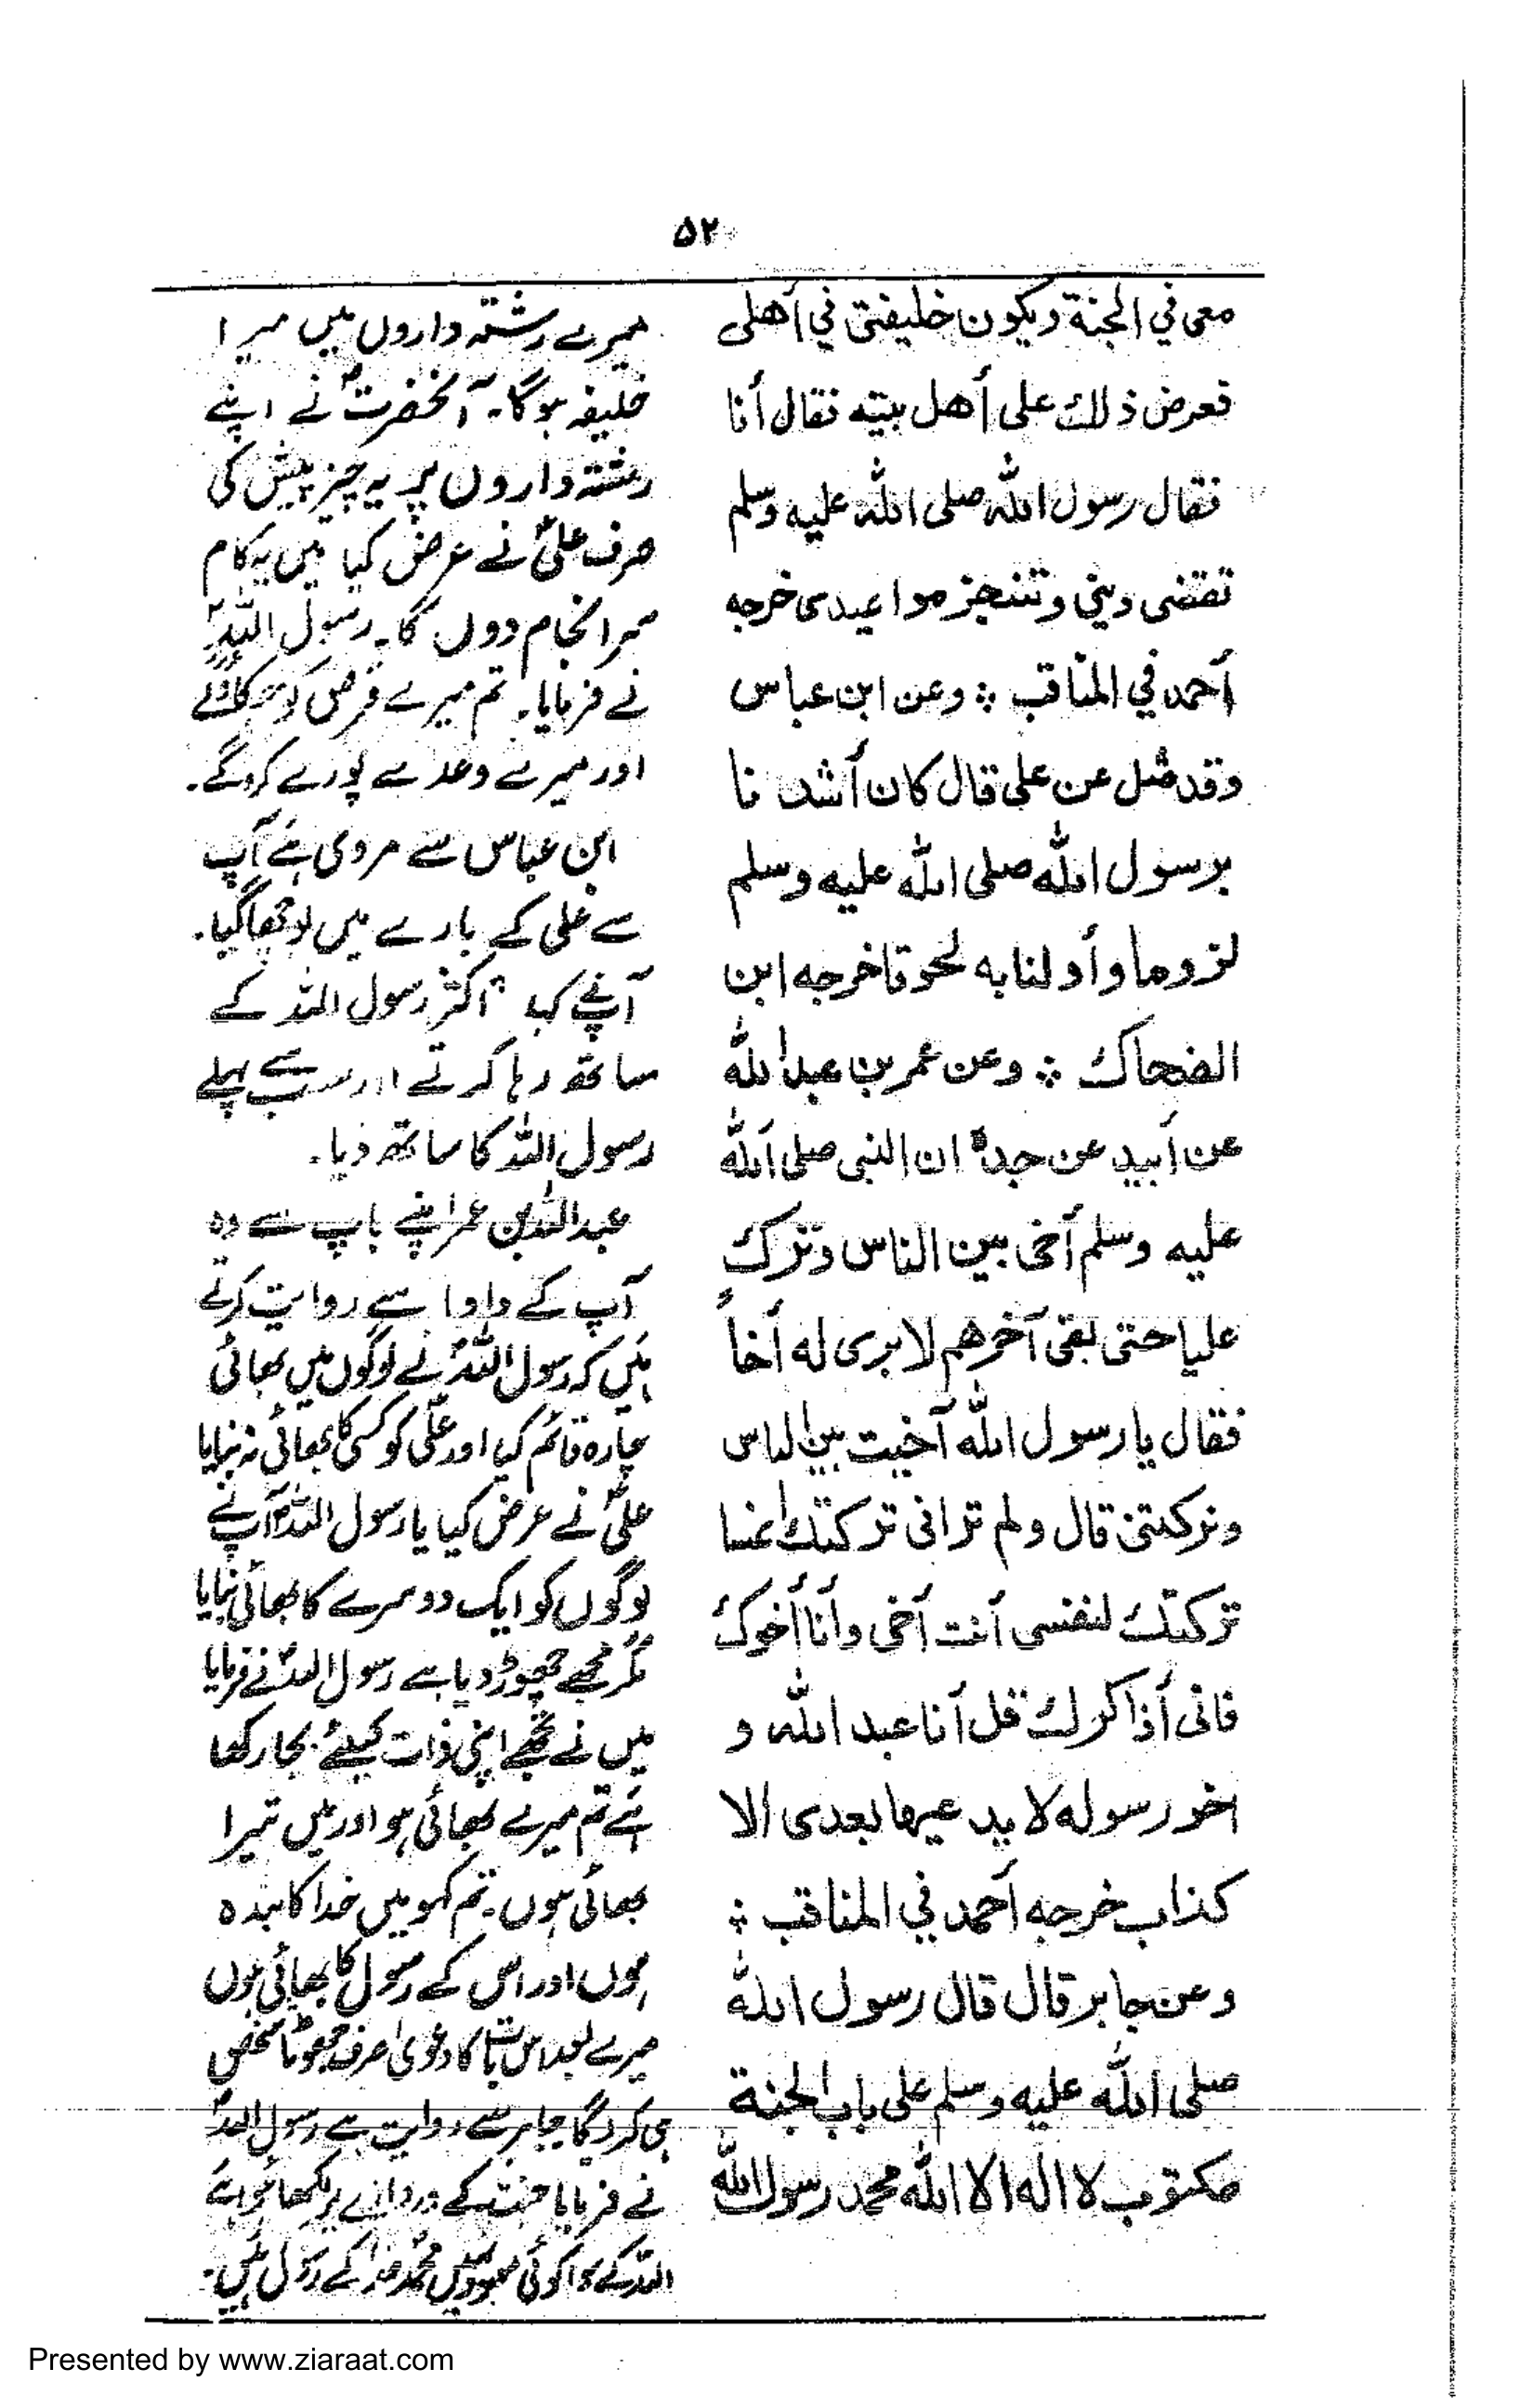 ۵۲
معى في الجنة ويكون خليفتى في أهلى
فعرض ذلك على أهل بيته فقال أنا
فقال رسول الله صلى الله عليه وسلم
تقضى ديني وتنجز مواعيدى خرجه
أحمد في المناقب ⁂ وعن ابن عباس
وقد سئل عن على قال كان أشدنا
برسول الله صلى الله عليه وسلم
لزوما وأولنا به لحوقا خرجه ابن
الضحاك ⁂ وعن عمر بن عبد الله
عن أبيه عن جده ان النبى صلى الله
عليه وسلم آخى بين الناس وترك
عليا حتى بقى آخرهم لا يرى له أخاً
فقال يا رسول الله آخيت بين الناس
وتركتنى قال ولم ترانى تركتك انما
تركتك لنفسى أنت أخى وأنا أخوك
فانى أذاكرك قل أنا عبد الله و
اخو رسوله لا يدعيها بعدى الا
كذاب خرجه أحمد في المناقب ⁂
وعن جابر قال قال رسول الله
صلى الله عليه وسلم على باب الجنة
مكتوب لا اله الا الله محمد رسول الله
میرے رشتہ داروں میں میرا
خلیفہ ہوگا۔ آنحضرتؐ نے اپنے
رشتہ داروں پر یہ چیز پیش کی
صرف علیؑ نے عرض کیا میں یہ کام
سرانجام دوں گا۔ رسول اللہؐ
نے فرمایا۔ تم میرے قرض کو
اور میرے وعدے پورے کروگے۔
ابن عباس سے مروی ہے آپ
سے علی کے بارے میں پوچھا گیا۔
آپنے کہا اکثر رسول اللہ کے
ساتھ رہا کرتے اور سب سے پہلے
رسول اللہ کا ساتھ دیا۔
عبداللہ بن عمر اپنے باپ سے وہ
آپ کے دادا سے روایت کرتے
ہیں کہ رسول اللہؐ نے لوگوں میں بھائی
چارہ قائم کیا اور علیؑ کو کسی کا بھائی نہ بنایا
علیؑ نے عرض کیا یا رسول اللہؐ آپ نے
لوگوں کو ایک دوسرے کا بھائی بنایا
مگر مجھے چھوڑ دیا ہے رسول اللہؐ نے فرمایا
میں نے تجھے اپنی ذات کیلئے بچا رکھا
ہے تم میرے بھائی ہو اور میں تیرا
بھائی ہوں۔ تم کہو میں خدا کا بندہ
ہوں اور اس کے رسول کا بھائی ہوں
میرے بعد اس بات کا دعویٰ صرف جھوٹا شخص
ہی کرے گا جابر سے روایت ہے رسول اللہؐ
نے فرمایا جنت کے دروازے پر لکھا ہوا ہے
اللہ کے سوا کوئی معبود نہیں محمدؐ خدا کے رسول ہیں۔
Presented by www.ziaraat.com